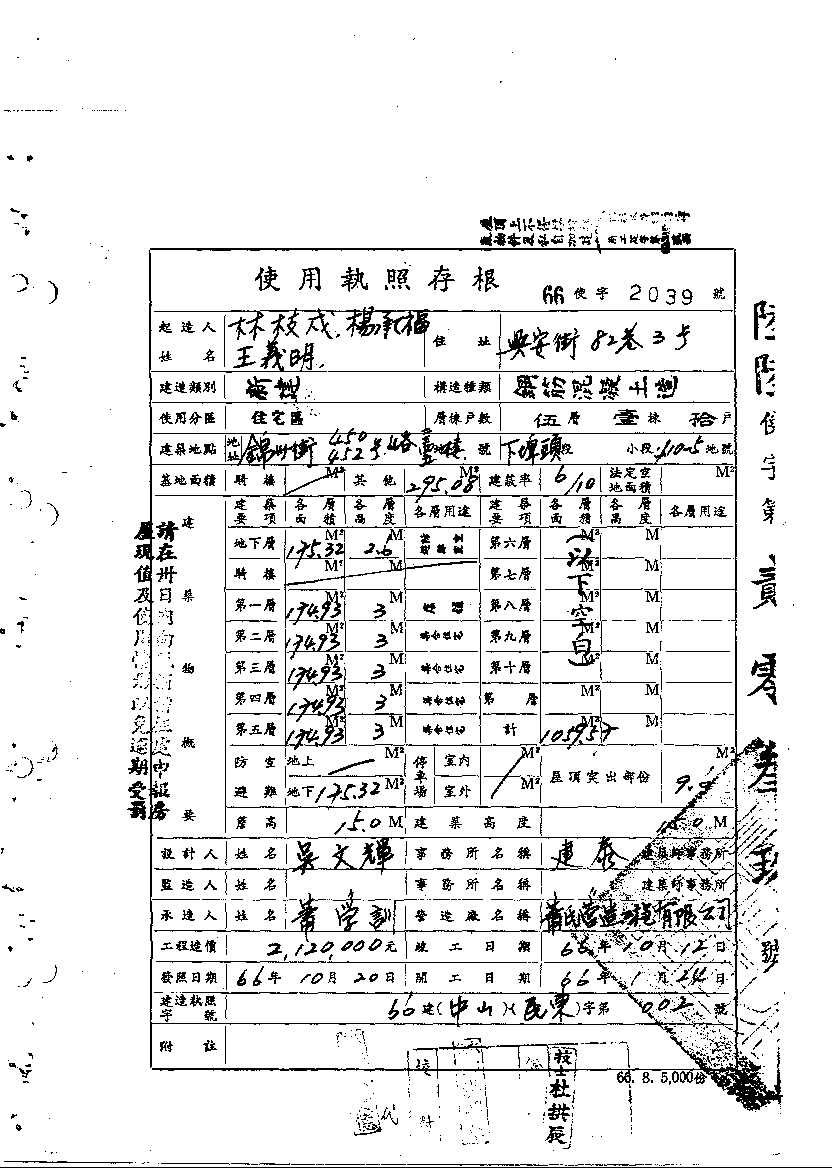 使用執照存根
66 使字 2039 號
起造人姓名 林枝戍.楊承福 王義明. 住址 興安街82巷3号
建造類別 構造種類 鋼筋混凝土造
使用分區 住宅區 層棟戶數 伍層 壹棟 拾戶
建築地點 地址 錦州街 450 452号 號 下埤頭段 小段 610-5 地號
基地面積 騎樓 M² 其他 295.08 M² 建蔽率 6/10 法定空地面積 M²
建築要項 各層面積 各層高度 各層用途 建築要項 各層面積 各層高度 各層用途
地下層 175.32 M² 2.6 M 第六層 M² M
騎樓 M² M 第七層 M² M
第一層 174.93 M² 3 M 第八層 M² M
第二層 174.93 M² 3 M 第九層 M² M
第三層 174.93 M² 3 M 第十層 M² M
第四層 174.93 M² 3 M 第 層 M² M
第五層 174.93 M² 3 M 計 1059.57 M² M
(以下空白)
建築物概要
防空避難 地上 M² 停車場 室內 M² 屋頂突出部份 M²
地下 175.32 M² 室外 M²
簷高 15.0 M 建築高度 M
設計人 姓名 吳文輝 事務所名稱 建泰 建築師事務所
監造人 姓名 事務所名稱 建築師事務所
承造人 姓名 蕭學訓 營造廠名稱 蕭氏營造工程有限公司
工程造價 2,120,000元 竣工日期 66年10月12日
發照日期 66年10月20日 開工日期 66年1月24日
建造執照字號 66建(中山)(民栗)字第 002 號
附註
66. 8. 5,000份
請在卅日內向
屋現值及使用
以免逾期受罰
申報房
陸陸使字第貳零叁玖號
技士杜拱辰
代